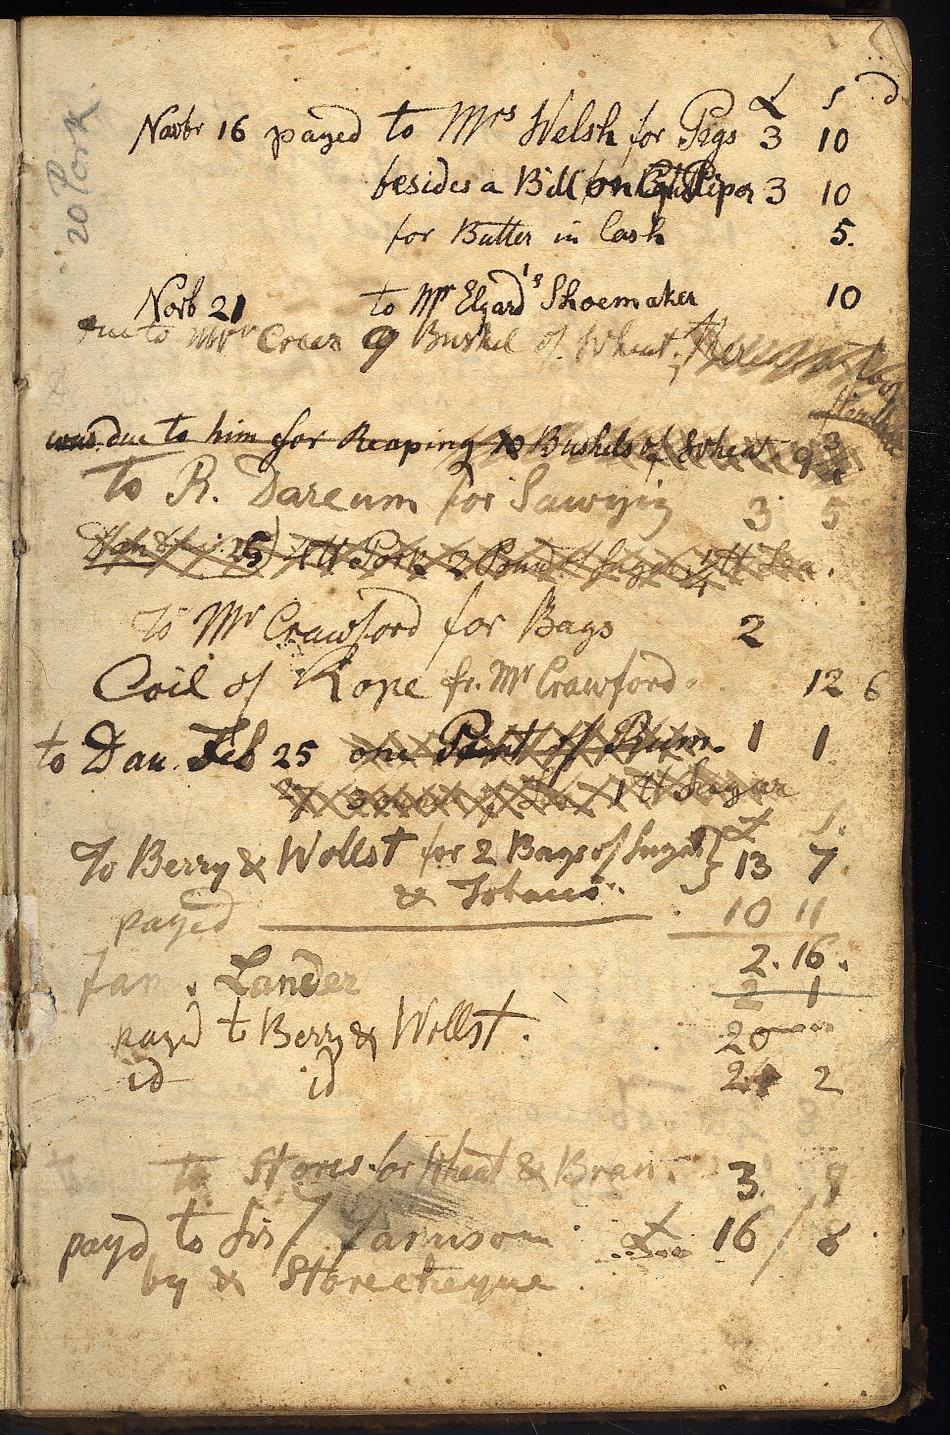 20 Pork
£ s d
Novbr 16 payed to Mrs Welsh for Pigs 3 10
besides a Bill on Piper 3 10
for Butter in Cash 5.
Novb 21 to Mr Elyard's Shoemaker 10
due to Mr 9 Bushel of Wheat.
was due to him for Reaping 10 Bushels of Wheat 9
to R. Dareum for Sawyig 3 5
25 1 lb Pork 2 Pound Sugar 1/4 lb Tea.
To Mr Crawford for Bags 2
Coil of Rope fr. Mr Crawford. 12 6
to Dan. Feb 25 one Point of Rum. 1 1
27 3 Tea 1 lb Sugar
£ s.
To Berry & Wollst for 2 Bags of Sugar } 13 7
& Tobaco
payed 10 11
2.16.
Jam. Lander 2 1
payd to Berry & Wollst. 20
id id 2 2
to Stores for Wheat & Bran. 3. 8
payd to Sir / Jamison £ 16 / 8
by & Storecheque